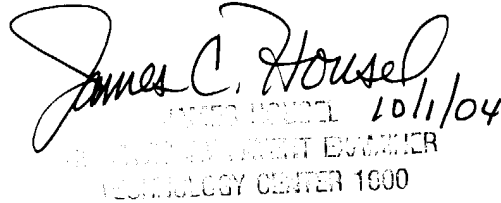 James C. Housel
JAMES HOUSEL 10/1/04
PATENT EXAMINER
TECHNOLOGY CENTER 1600